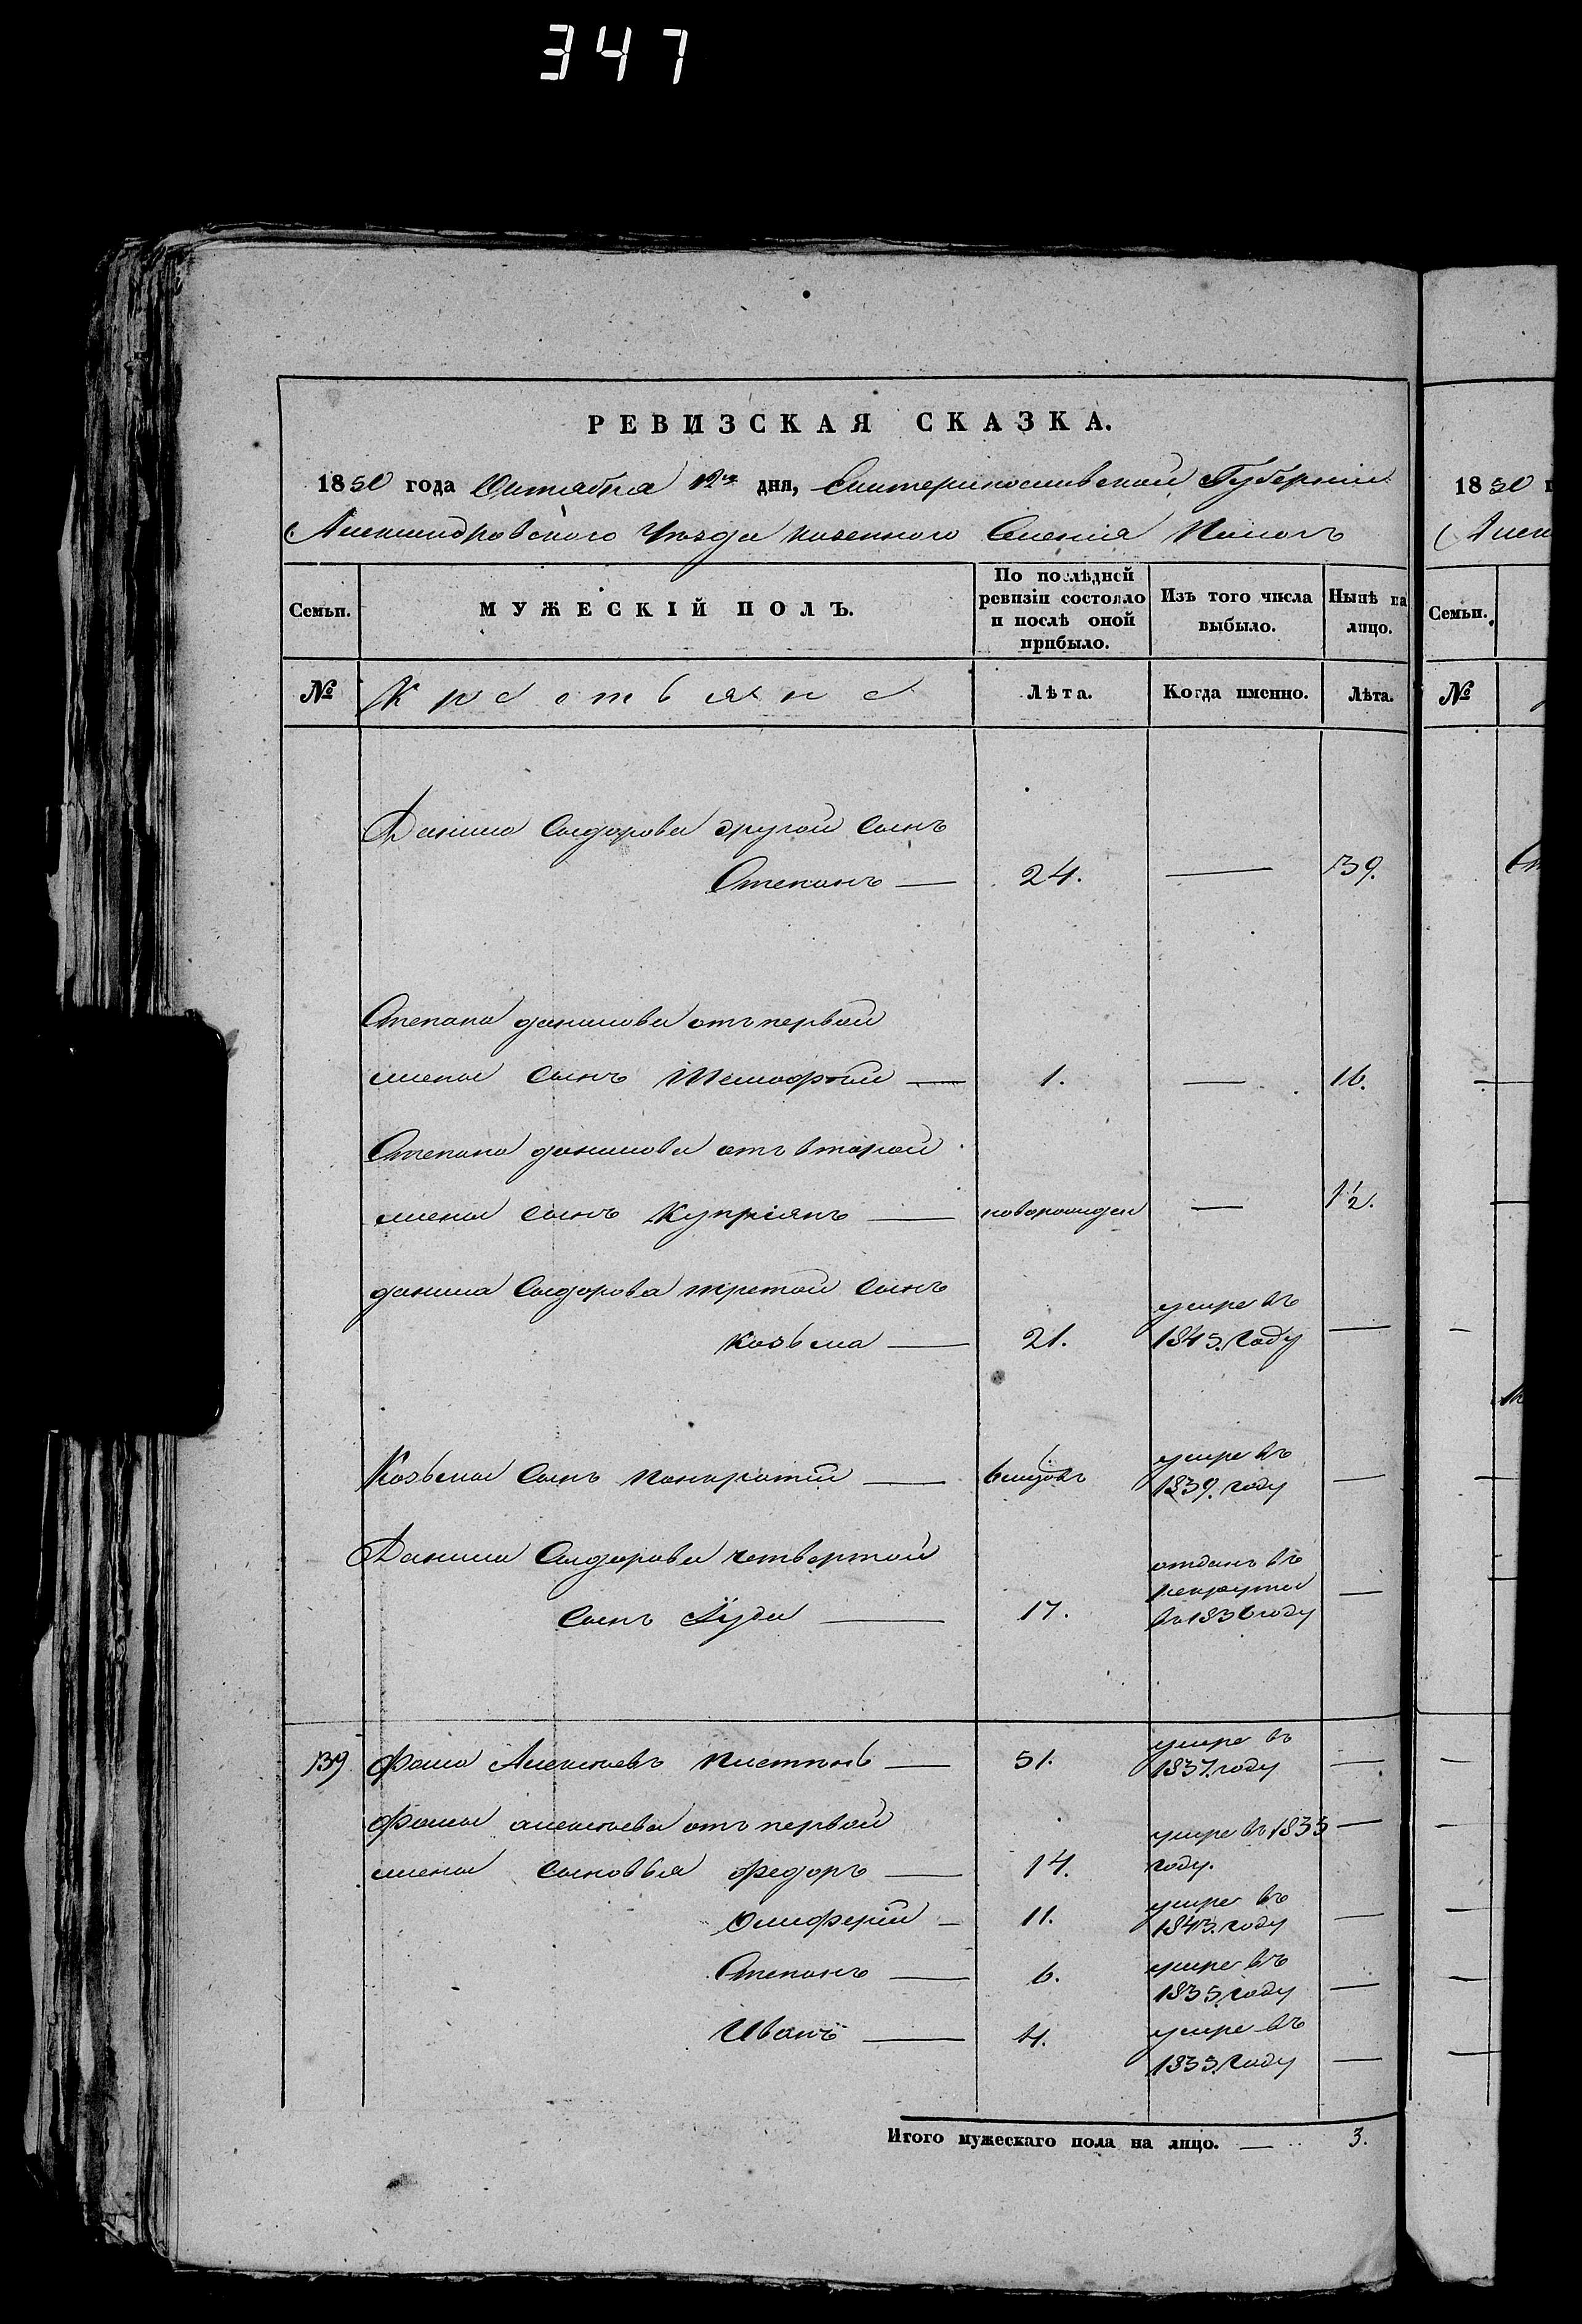 347
РЕВИЗСКАЯ СКАЗКА.
1850 года Октября 12го дня, Екатеринославской Губернiи
Александровского Уѣзда казенного Селенiя
Семьи. МУЖЕСКIЙ ПОЛЪ. По послѣдней ревизiи состояло и послѣ оной прибыло. Изъ того числа выбыло. Нынѣ на лицо.
№ Крестьяне Лѣта. Когда именно. Лѣта.
Данила Сидорова другой сынъ
Степанъ — 24. — 39.
Степана данилова отъ первой
жены сынъ Тимофей — 1. — 16.
Степана данилова отъ второй
жены сынъ Купрiянъ — новорожден — 1½.
данила Сидорова третой сынъ
Козьма — 21. умре въ 1845. году —
Козьмы сынъ Панкратiй — 6 мѣсяцовъ умре въ 1839. году —
Данила Сидорова четвертой
сынъ Iуда — 17. отданъ въ рекруты въ 1836 году —
139 Фома Алексѣевъ — 51. умре въ 1837. году —
Фомы алексѣева отъ первой
жены сыновья Федоръ — 14. умре въ 1835 году. —
Олиферiй — 11. умре въ 1843. году —
Степанъ — 6. умре въ 1835. году —
Иванъ — 4. умре въ 1833. году —
Итого мужескаго пола на лицо. — 3.
1850
Семьи.
№